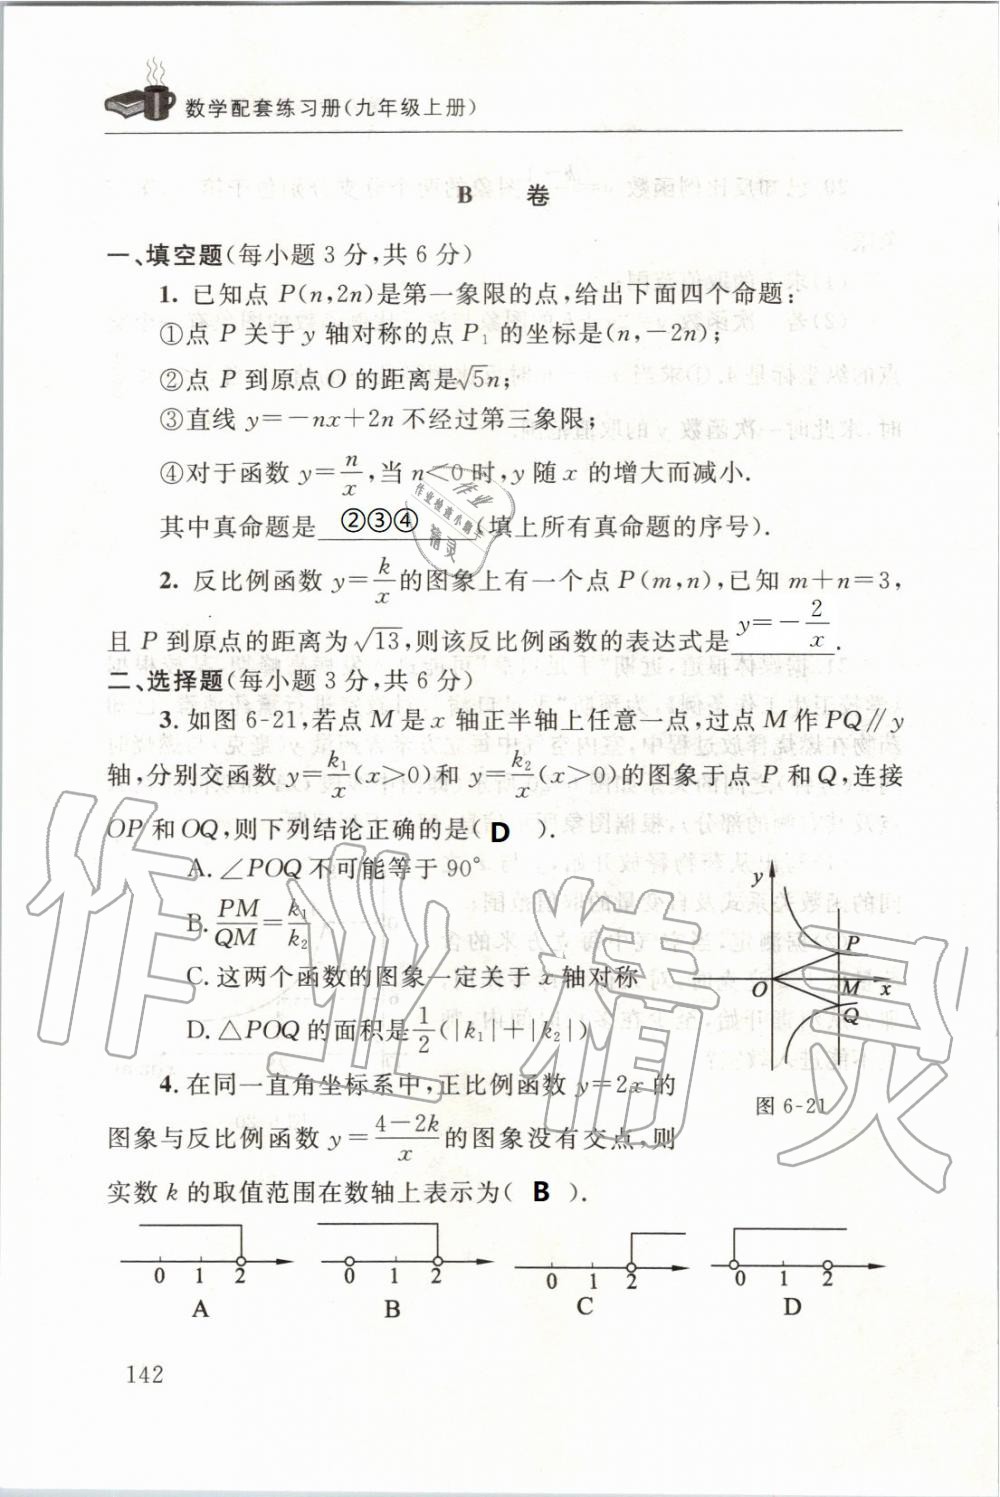 数学配套练习册(九年级上册)
B 卷
一、填空题(每小题 3 分,共 6 分)
1. 已知点 P(n,2n)是第一象限的点,给出下面四个命题:
①点 P 关于 y 轴对称的点 P₁ 的坐标是(n,-2n);
②点 P 到原点 O 的距离是√5n;
③直线 y=-nx+2n 不经过第三象限;
④对于函数 y=n/x,当 n<0 时,y 随 x 的增大而减小.
其中真命题是 ②③④ (填上所有真命题的序号).
2. 反比例函数 y=k/x的图象上有一个点 P(m,n),已知 m+n=3,
且 P 到原点的距离为√13,则该反比例函数的表达式是 y=-2/x .
二、选择题(每小题 3 分,共 6 分)
3. 如图 6-21,若点 M 是 x 轴正半轴上任意一点,过点 M 作 PQ∥y
轴,分别交函数 y=k₁/x(x>0)和 y=k₂/x(x>0)的图象于点 P 和 Q,连接
OP 和 OQ,则下列结论正确的是( D ).
A. ∠POQ 不可能等于 90°
B. PM/QM=k₁/k₂
C. 这两个函数的图象一定关于 x 轴对称
D. △POQ 的面积是1/2(|k₁|+|k₂|)
y
P
O M x
Q
图 6-21
4. 在同一直角坐标系中,正比例函数 y=2x 的
图象与反比例函数 y=4-2k/x的图象没有交点,则
实数 k 的取值范围在数轴上表示为( B ).
0 1 2
A
0 1 2
B
0 1 2
C
0 1 2
D
142
作业
作业检查小助手
精灵
作业精灵